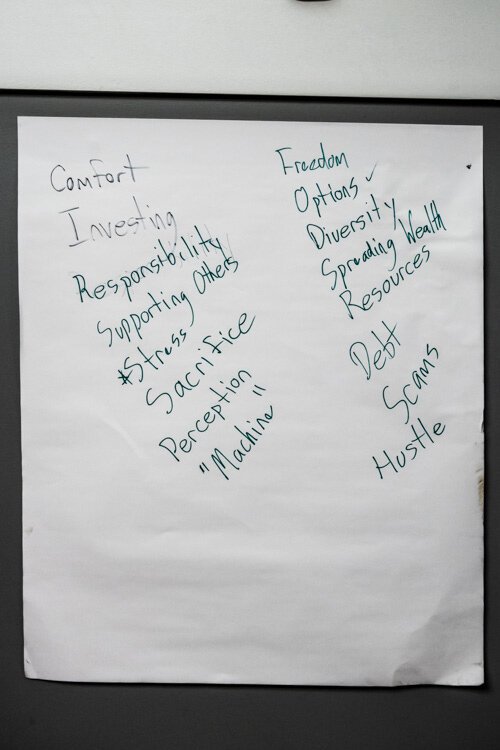 Comfort
Investing
Responsibility
Supporting Others
*Stress
Sacrifice
Perception
"Machine"
Freedom
Options ✓
Diversity
Spreading Wealth
Resources
Debt
Scams
Hustle